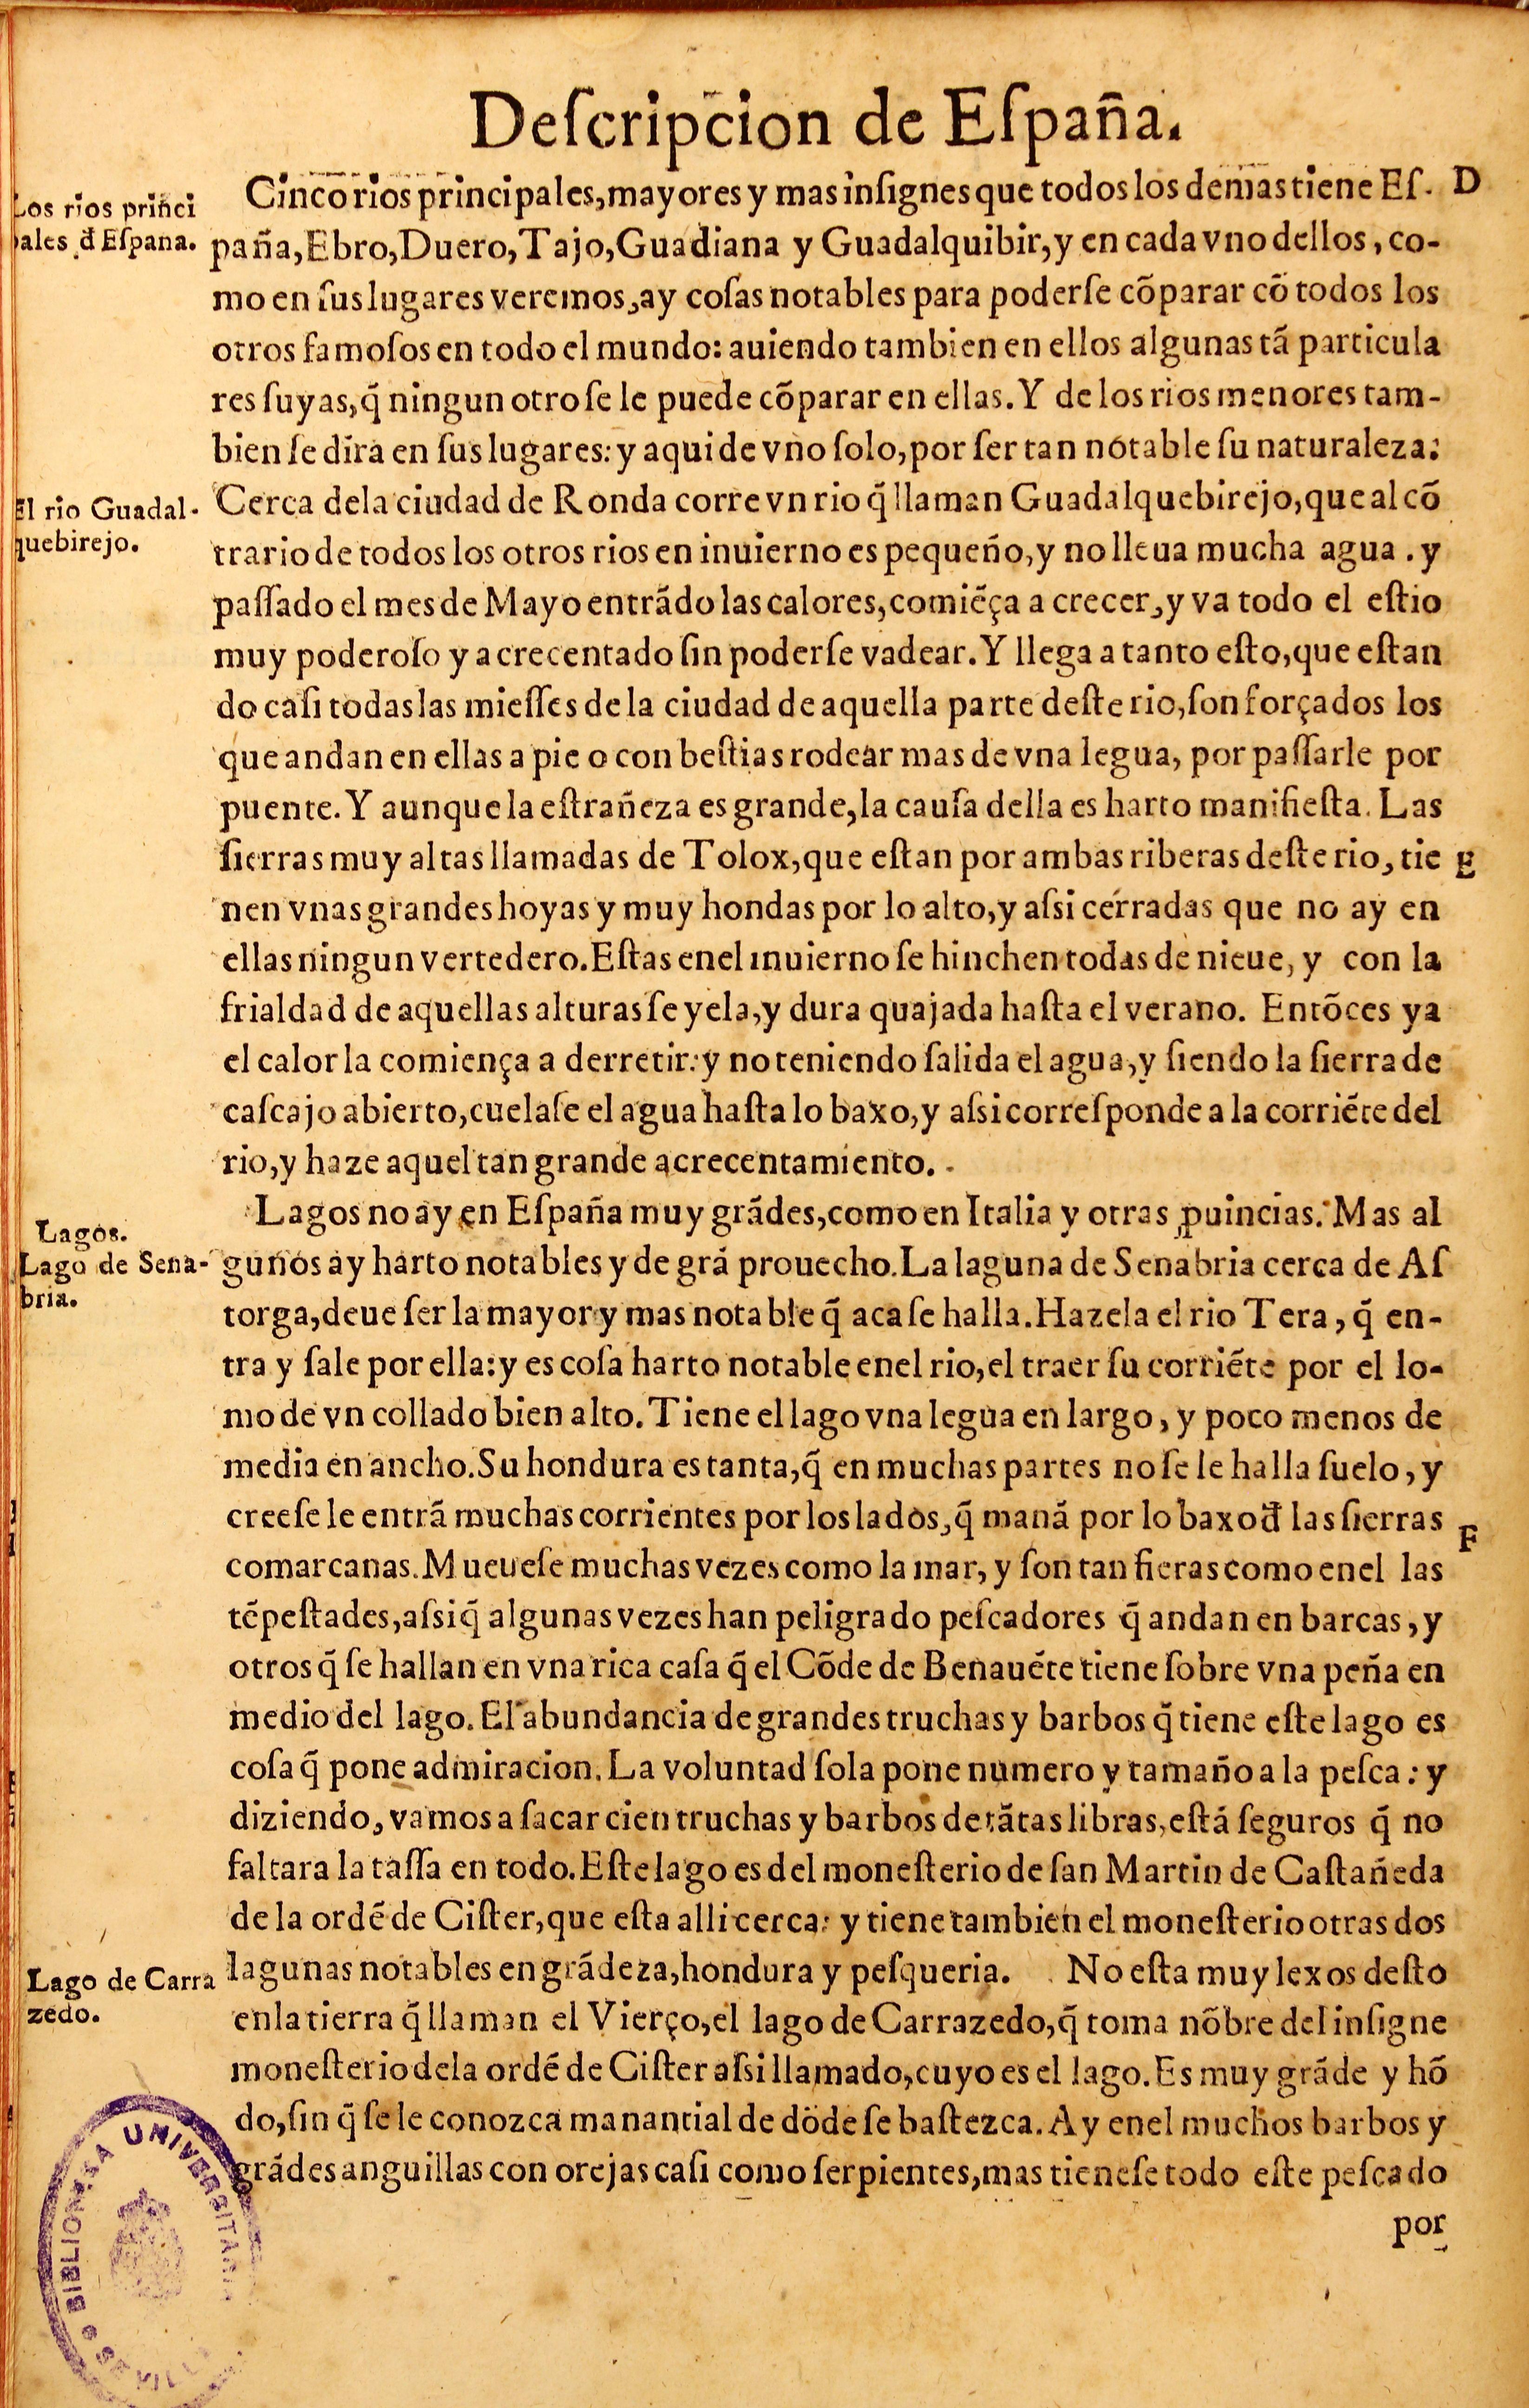 Deſcripcion de Eſpaña.
Los rios princi
pales đ Eſpana.
Cinco rios principales, mayores y mas inſignes que todos los demas tiene Eſ-
D
paña, Ebro, Duero, Tajo, Guadiana y Guadalquibir, y en cada vno dellos, co-
mo en ſus lugares veremos, ay coſas notables para poderſe cõparar cõ todos los
otros famoſos en todo el mundo: auiendo tambien en ellos algunas tã particula
res ſuyas, q̃ ningun otro ſe le puede cõparar en ellas. Y de los rios menores tam-
bien ſe dira en ſus lugares: y aqui de vno ſolo, por ſer tan notable ſu naturaleza:
El rio Guadal-
quebirejo.
Cerca dela ciudad de Ronda corre vn rio q̃ llaman Guadalquebirejo, que al cõ
trario de todos los otros rios en inuierno es pequeño, y no lleua mucha agua . y
paſſado el mes de Mayo entrãdo las calores, comiẽça a crecer, y va todo el eſtio
muy poderoſo y acrecentado ſin poderſe vadear. Y llega a tanto eſto, que eſtan
do caſi todas las mieſſes de la ciudad de aquella parte deſte rio, ſon forçados los
que andan en ellas a pie o con beſtias rodear mas de vna legua, por paſſarle por
puente. Y aunque la eſtrañeza es grande, la cauſa della es harto manifieſta. Las
ſierras muy altas llamadas de Tolox, que eſtan por ambas riberas deſte rio, tie
E
nen vnas grandes hoyas y muy hondas por lo alto, y aſsi cerradas que no ay en
ellas ningun vertedero. Eſtas enel inuierno ſe hinchen todas de nieue, y con la
frialdad de aquellas alturas ſe yela, y dura quajada haſta el verano. Entõces ya
el calor la comiença a derretir: y no teniendo ſalida el agua, y ſiendo la ſierra de
caſcajo abierto, cuelaſe el agua haſta lo baxo, y aſsi correſponde a la corriẽte del
rio, y haze aquel tan grande acrecentamiento.
Lagos.
Lago de Sena-
bria.
Lagos no ay en Eſpaña muy grãdes, como en Italia y otras ꝓuincias. Mas al
gunos ay harto notables y de grã prouecho. La laguna de Senabria cerca de Aſ
torga, deue ſer la mayor y mas notable q̃ aca ſe halla. Hazela el rio Tera, q̃ en-
tra y ſale por ella: y es coſa harto notable enel rio, el traer ſu corriẽte por el lo-
mo de vn collado bien alto. Tiene el lago vna legua en largo, y poco menos de
media en ancho. Su hondura es tanta, q̃ en muchas partes no ſe le halla ſuelo, y
creeſe le entrã muchas corrientes por los lados, q̃ manã por lo baxo đ las ſierras
F
comarcanas. Mueueſe muchas vezes como la mar, y ſon tan fieras como enel las
tẽpeſtades, aſsi q̃ algunas vezes han peligrado peſcadores q̃ andan en barcas, y
otros q̃ ſe hallan en vna rica caſa q̃ el Cõde de Benauẽte tiene ſobre vna peña en
medio del lago. El abundancia de grandes truchas y barbos q̃ tiene eſte lago es
coſa q̃ pone admiracion. La voluntad ſola pone numero y tamaño a la peſca: y
diziendo, vamos a ſacar cien truchas y barbos de tãtas libras, eſtã ſeguros q̃ no
faltara la taſſa en todo. Eſte lago es del moneſterio de ſan Martin de Caſtañeda
de la ordẽ de Ciſter, que eſta alli cerca: y tiene tambien el moneſterio otras dos
lagunas notables en grãdeza, hondura y peſqueria. No eſta muy lexos deſto
Lago de Carra
zedo.
enla tierra q̃ llaman el Vierço, el lago de Carrazedo, q̃ toma nõbre del inſigne
moneſterio dela ordẽ de Ciſter aſsi llamado, cuyo es el lago. Es muy grãde y hõ
do, ſin q̃ ſe le conozca manantial de dõde ſe baſtezca. Ay enel muchos barbos y
grãdes anguillas con orejas caſi como ſerpientes, mas tieneſe todo eſte peſcado
por
BIBLIOTECA UNIVERSITARIA